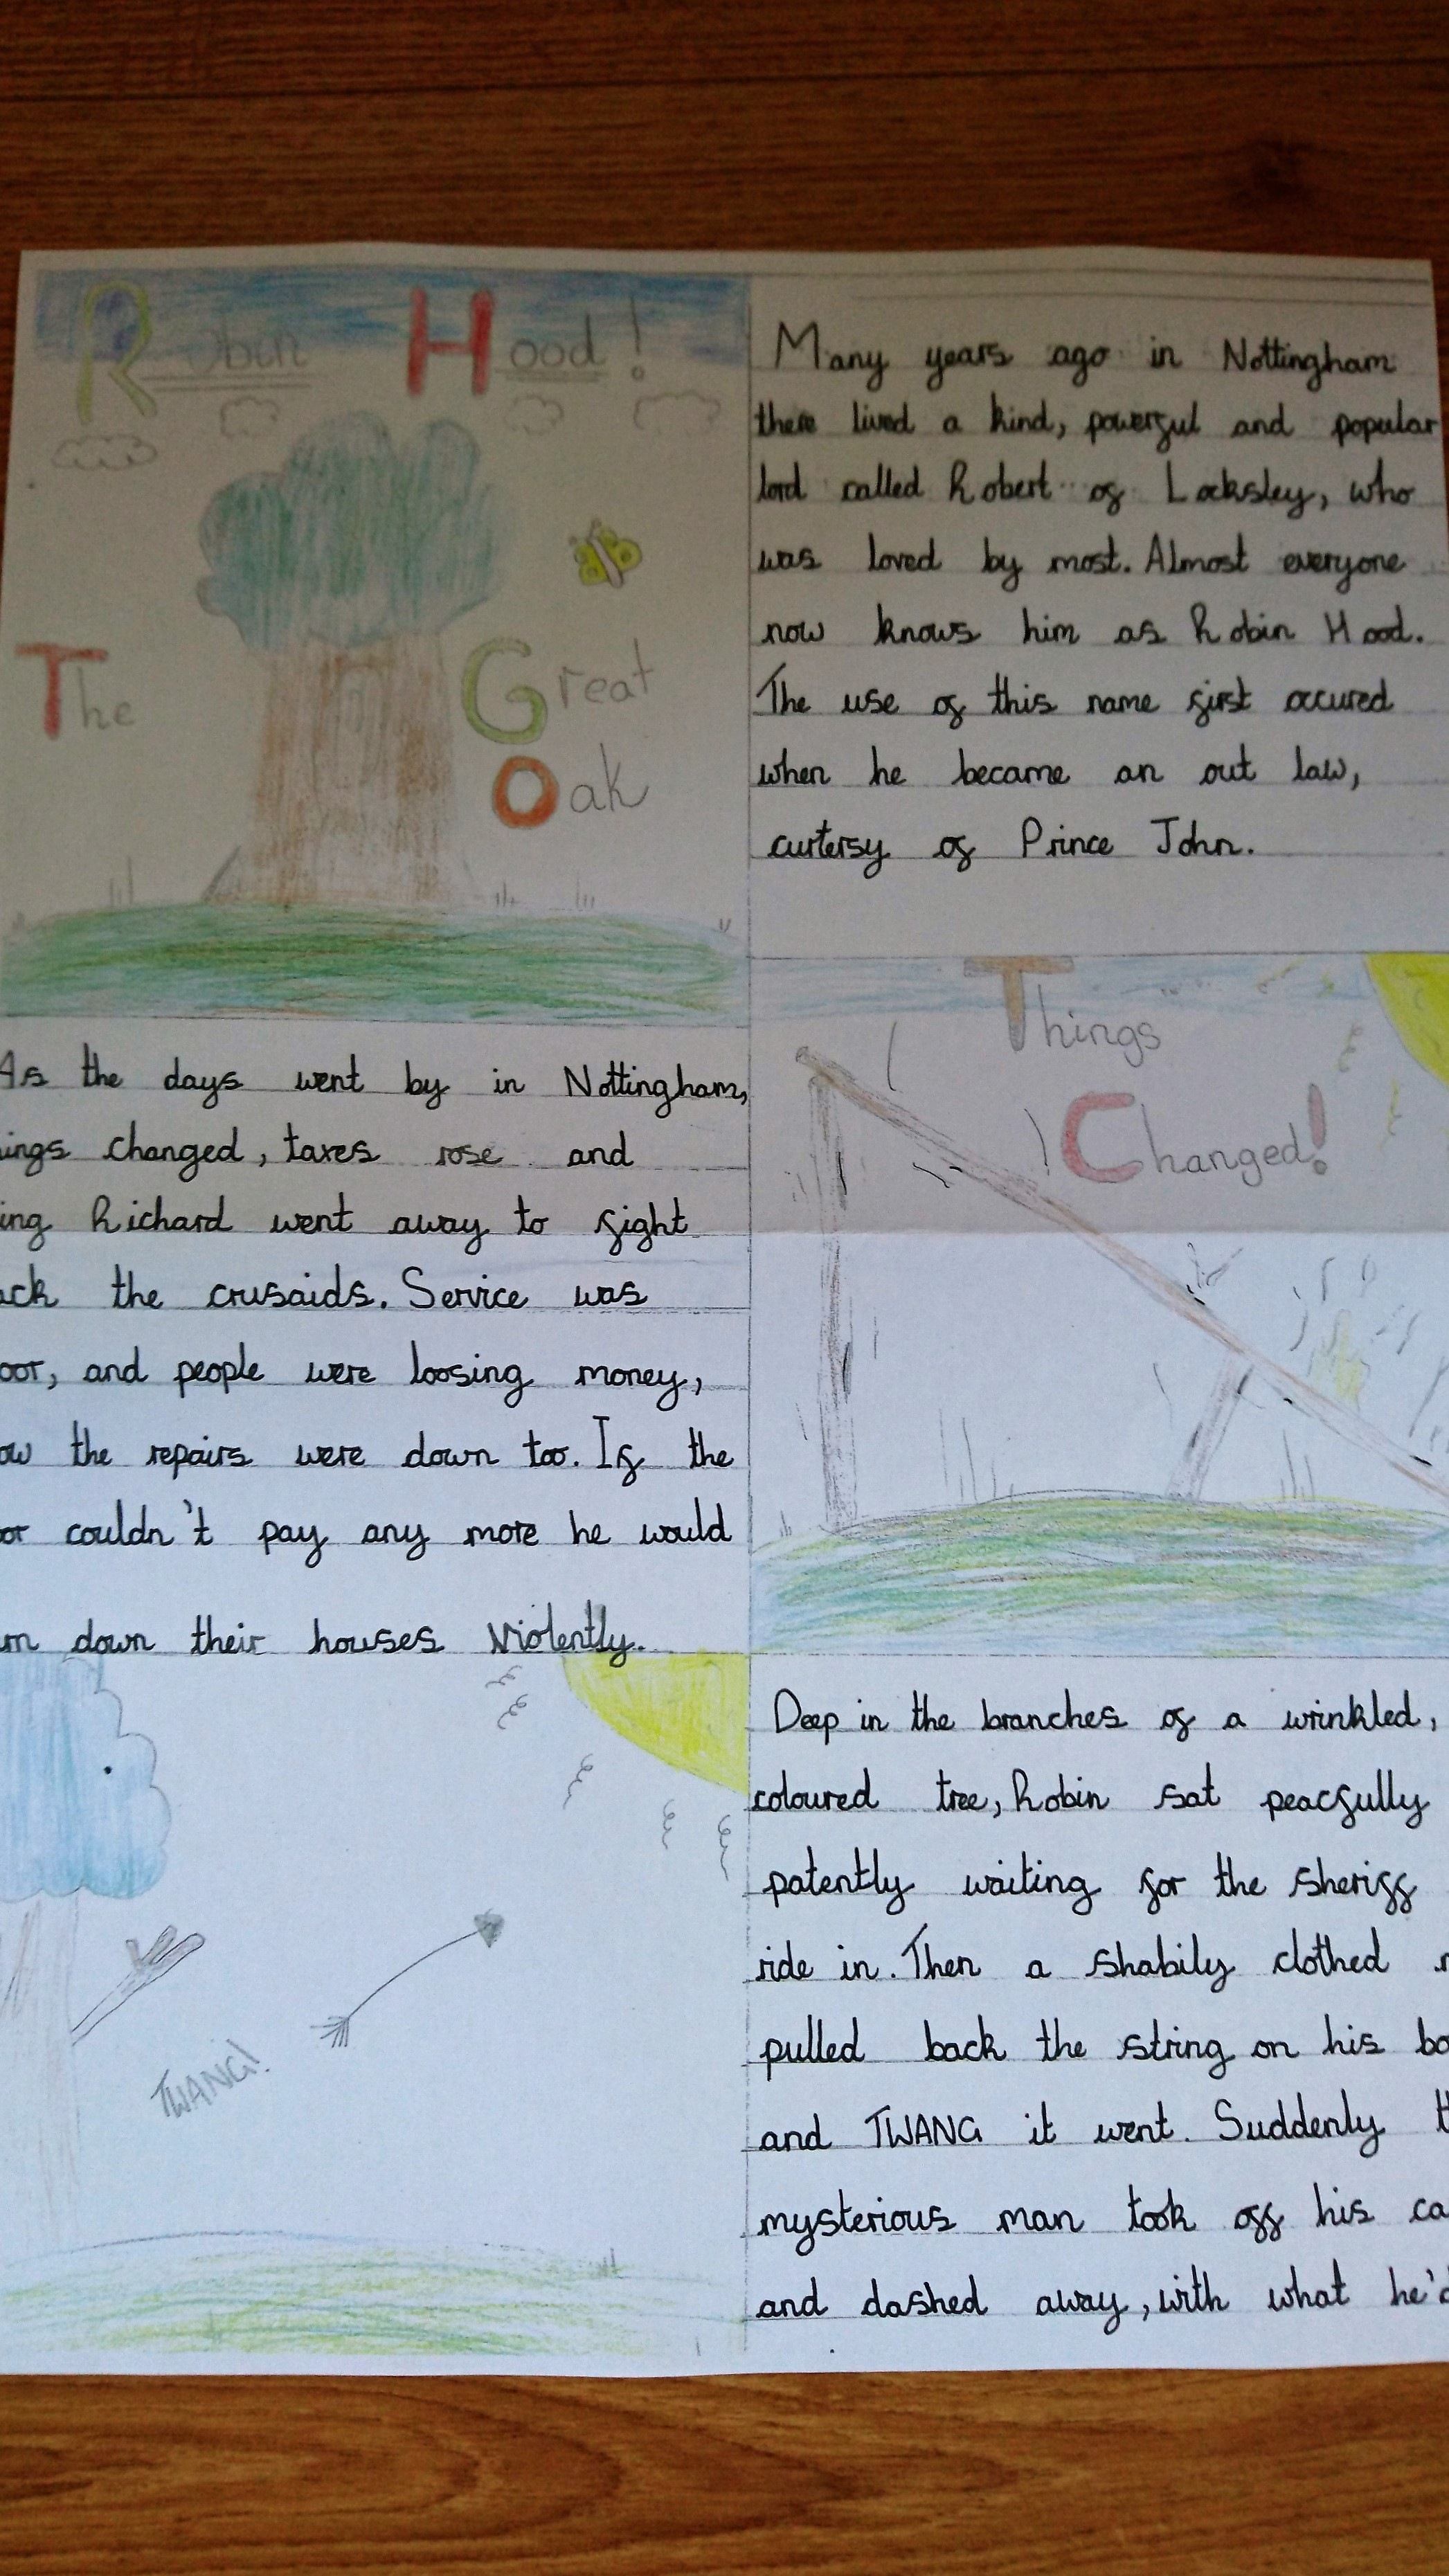 Robin Hood!
The Great
Oak
Many years ago in Nottingham
there lived a kind, powerful and popular
lord called Robert of Locksley, who
was loved by most. Almost everyone
now knows him as Robin Hood.
The use of this name first occured
when he became an out law,
curtersy of Prince John.
As the days went by in Nottingham,
ings changed, taxes rose and
ing Richard went away to fight
ack the crusaids. Service was
oor, and people were loosing money,
ow the repairs were down too. If the
oor couldn't pay any more he would
down their houses violently.
Things
Changed!
TWANG!
Deep in the branches of a wrinkled,
coloured tree, Robin sat peacfully
patently waiting for the sheriff
ride in. Then a shabily clothed
pulled back the string on his bo
and TWANG it went. Suddenly
mysterious man took off his ca
and dashed away, with what he'd